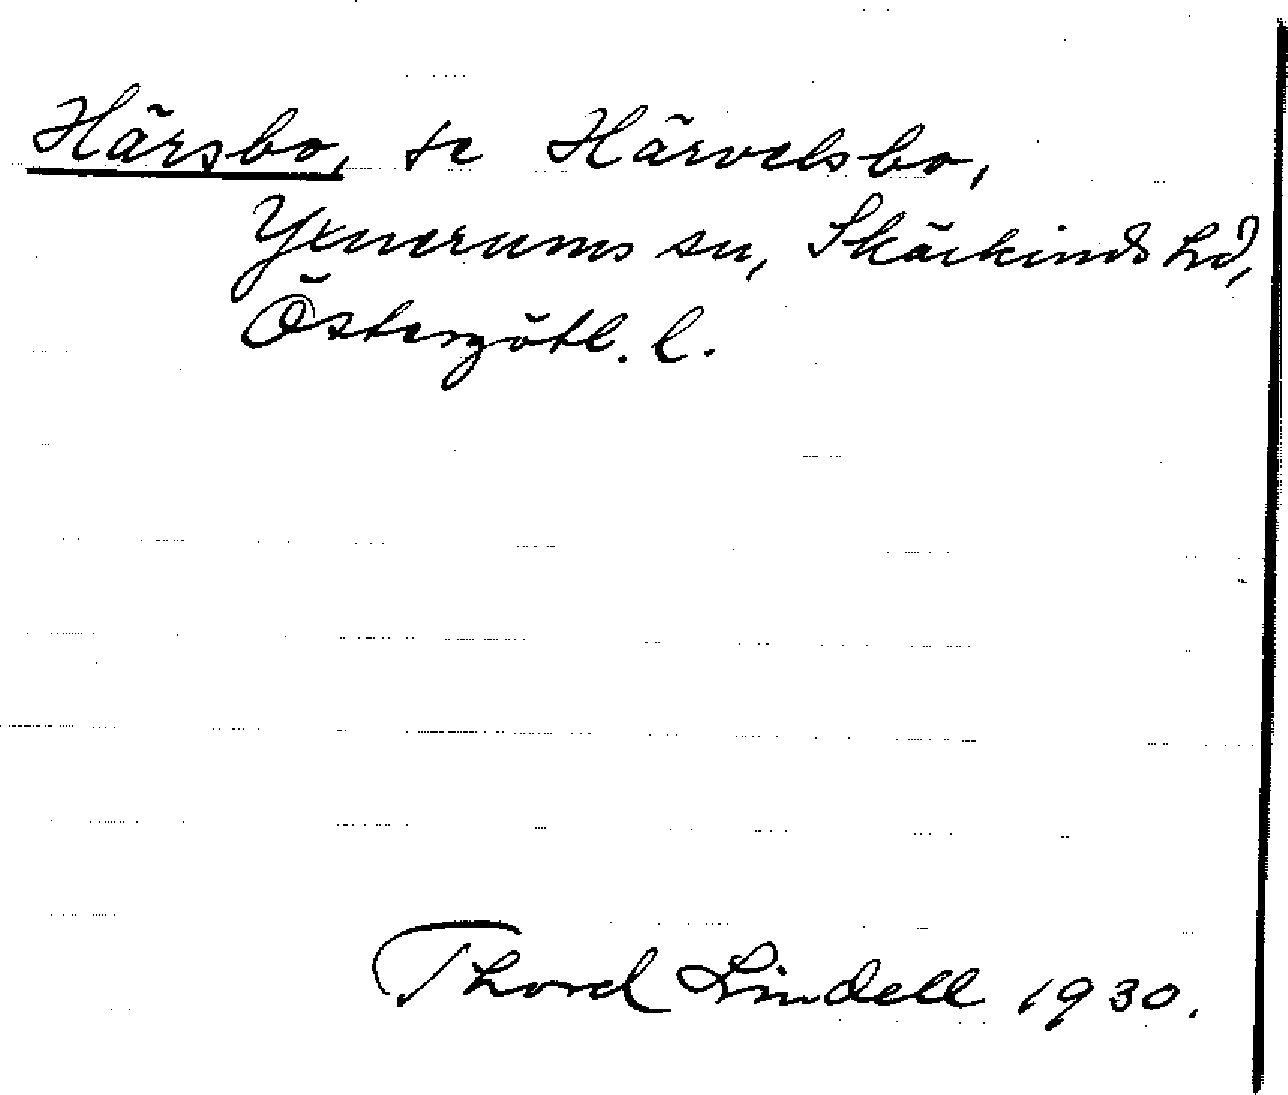 Härsbo, se Härvelsbo,
Yxnerums sn, Skärkinds hd,
Östergötl. l.
Thord Lindell 1930.